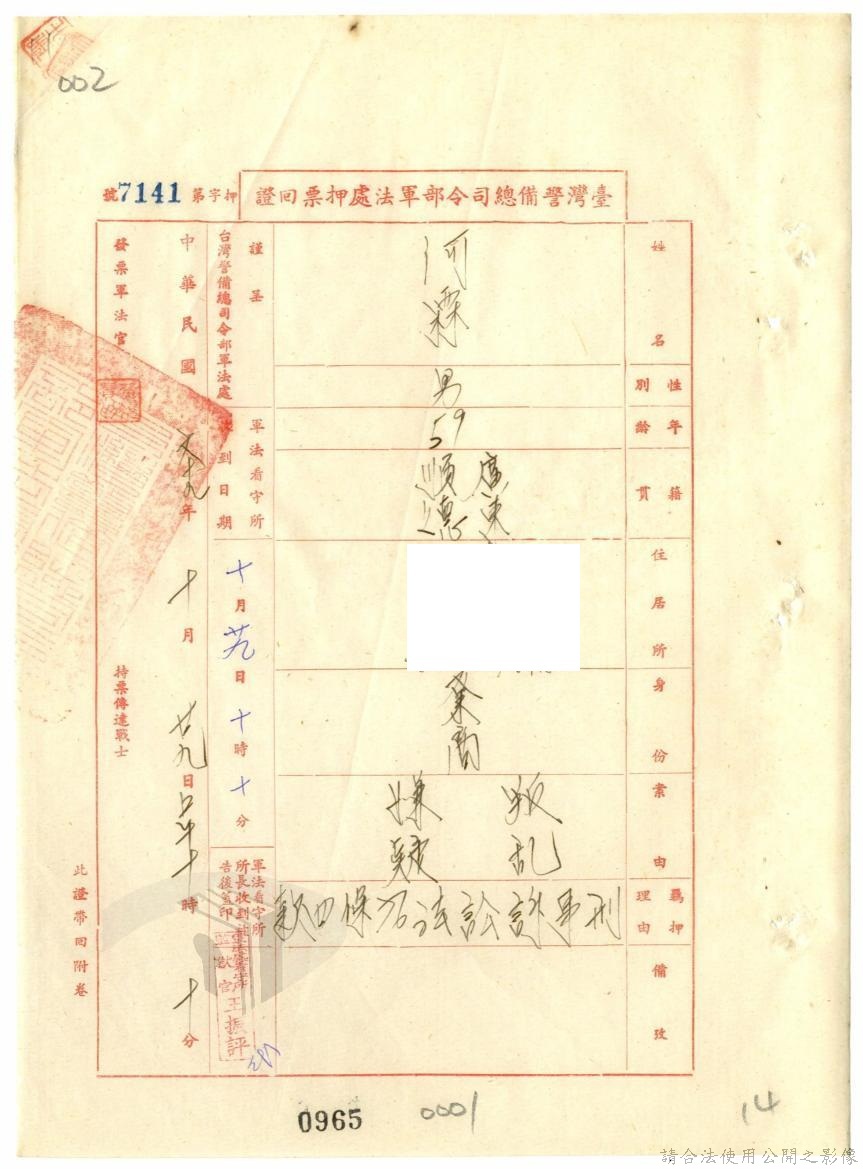 002
臺灣警備總司令部軍法處押票回證
押字第7141號
姓名
河霖
性別
男
年齡
59
籍貫
廣東
順德
住居所
身份
業商
案由
叛乱
嫌疑
羈押理由
刑事訴訟法
款
備攷
謹呈
台灣警備總司令部軍法處
軍法看守所
收到日期
十月廿九日十時十分
軍法看守所
所長收到被
告後簽印
獄官
王振評
中華民國
年十月廿九日
時十分
發票軍法官
持票傳達戰士
此證帶回附卷
0965
0001
14
請合法使用公開之影像